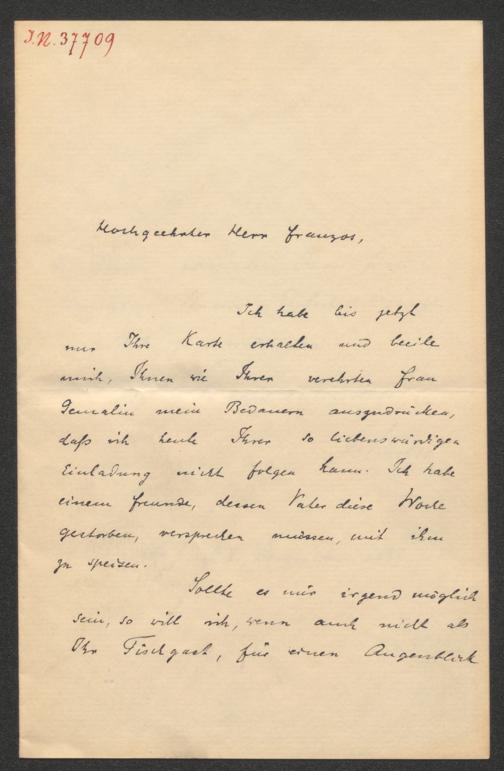 I.N. 37709
Hochgeehrter Herr Franzos,
Ich habe bis jetzt
nur Ihre Karte erhalten und beeile
mich, Ihnen wie Ihrer verehrten Frau
Gemalin mein Bedauern auszudrücken,
daß ich heute Ihrer so liebenswürdigen
Einladung nicht folgen kann. Ich habe
einem Freunde, dessen Vater diese Woche
gestorben, versprechen müssen, mit ihm
zu speisen.
Sollte es mir irgend möglich
sein, so will ich, wenn auch nicht als
Ihr Tischgast, für einen Augenblick